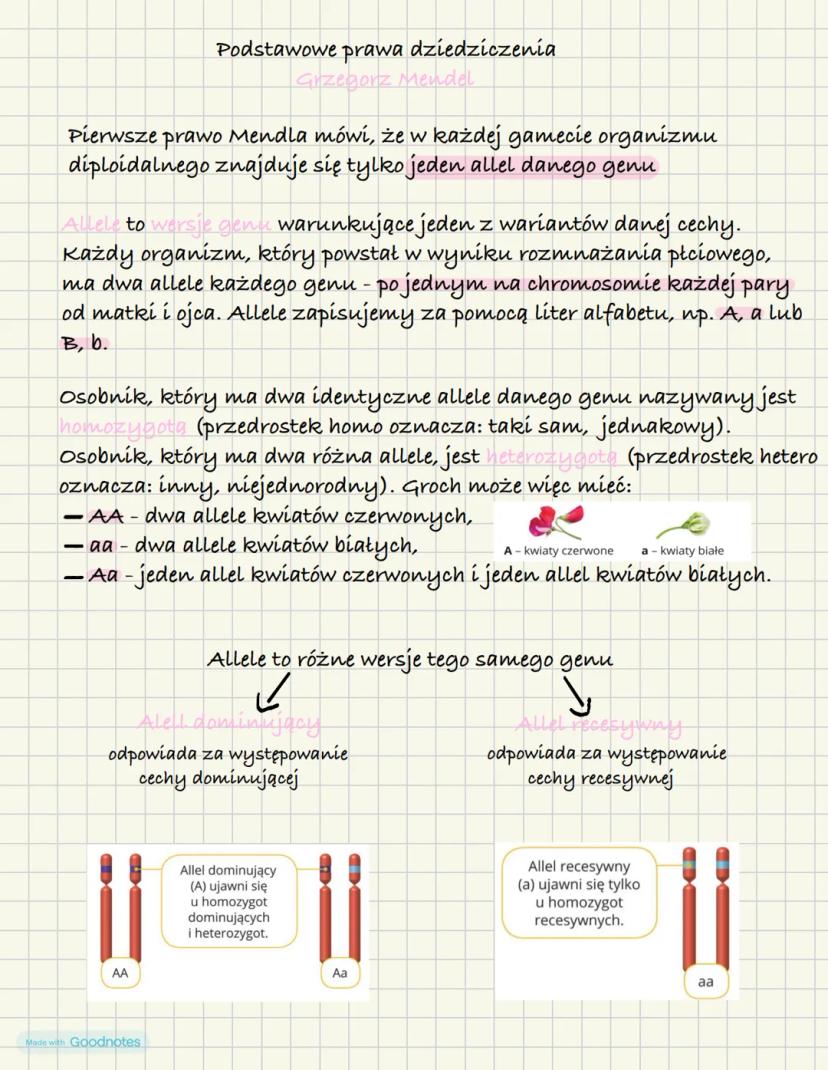 Podstawowe prawa dziedziczenia
Grzegorz Mendel
Pierwsze prawo Mendla mówi, że w każdej gamecie organizmu
diploidalnego znajduje się tylko jeden allel danego genu
Allele to wersje genu warunkujące jeden z wariantów danej cechy.
Każdy organizm, który powstał w wyniku rozmnażania płciowego,
ma dwa allele każdego genu - po jednym na chromosomie każdej pary
od matki i ojca. Allele zapisujemy za pomocą liter alfabetu, np. A, a lub
B, b.
Osobnik, który ma dwa identyczne allele danego genu nazywany jest
homozygotą (przedrostek homo oznacza: taki sam, jednakowy).
Osobnik, który ma dwa różna allele, jest heterozygotą (przedrostek hetero
oznacza: inny, niejednorodny). Groch może więc mieć:
— AA - dwa allele kwiatów czerwonych,
— aa - dwa allele kwiatów białych,
A – kwiaty czerwone a – kwiaty białe
— Aa - jeden allel kwiatów czerwonych i jeden allel kwiatów białych.
Allele to różne wersje tego samego genu
Alell dominujący
odpowiada za występowanie
cechy dominującej
Allel recesywny
odpowiada za występowanie
cechy recesywnej
Allel dominujący
(A) ujawni się
u homozygot
dominujących
i heterozygot.
AA
Aa
Allel recesywny
(a) ujawni się tylko
u homozygot
recesywnych.
aa
Made with Goodnotes